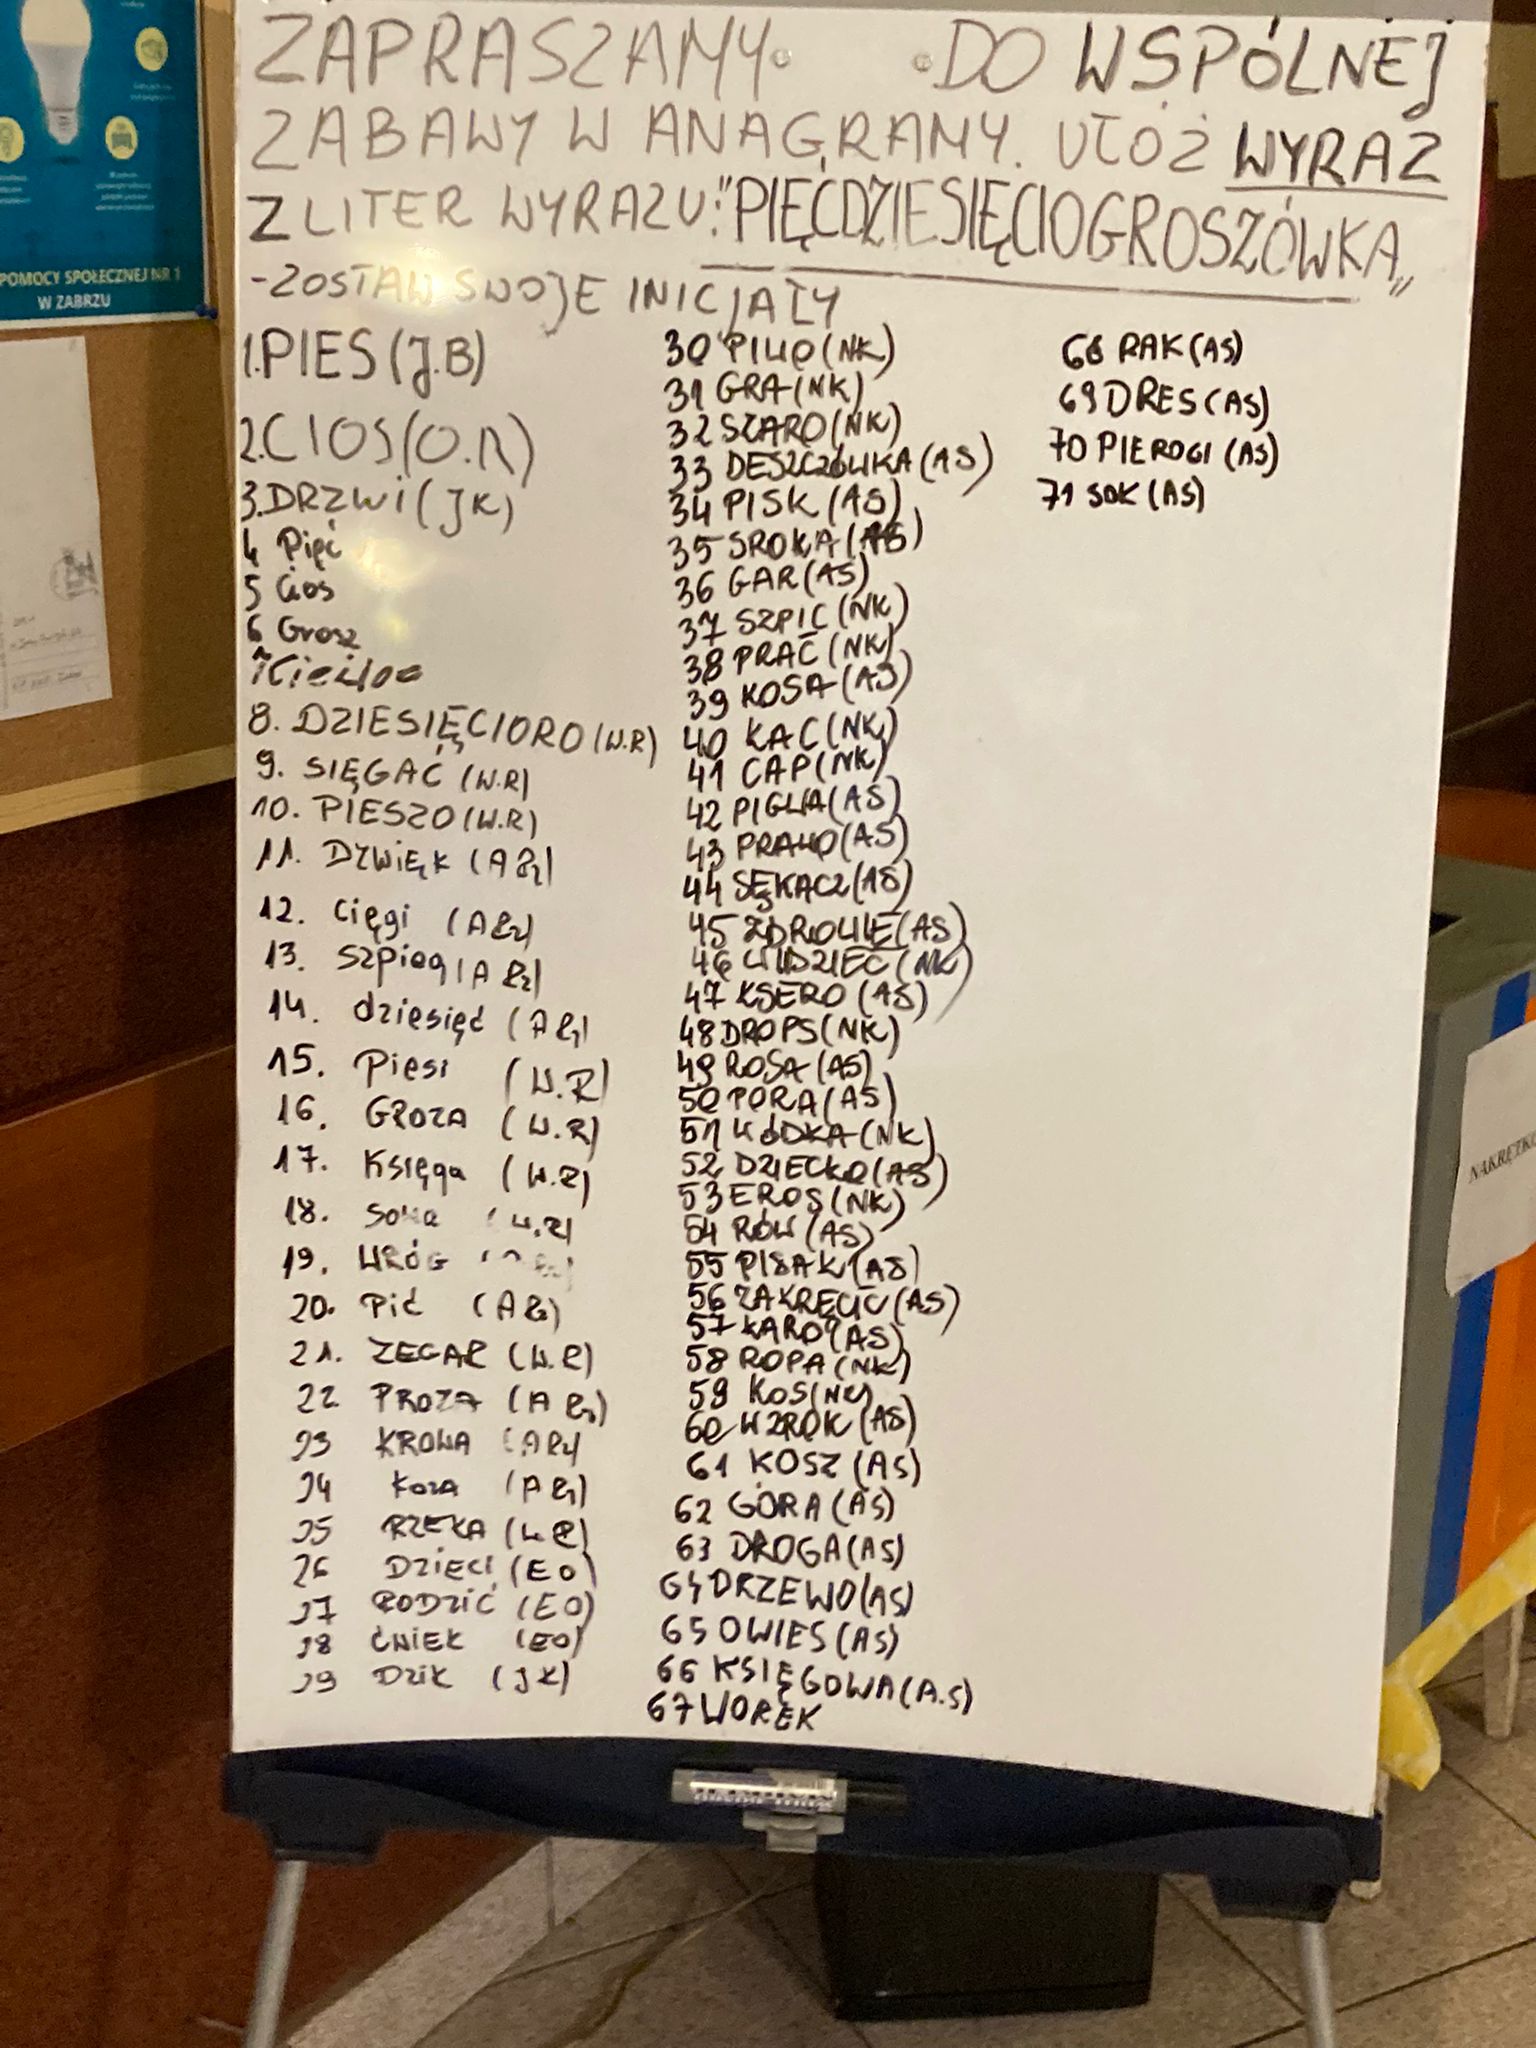 POMOCY SPOŁECZNEJ NR 1
W ZABRZU
ZAPRASZAMY DO WSPÓLNEJ
ZABAWY W ANAGRAMY. UŁÓŻ WYRAZ
Z LITER WYRAZU: "PIĘĆDZIESIĘCIOGROSZÓWKA"
- ZOSTAW SWOJE INICJAŁY
1. PIES (J.B)
2. CIOS (O.R)
3. DRZWI (JK)
4 Pięć
5 Cios
6 Grosz
8. DZIESIĘCIORO (W.R)
9. SIĘGAĆ (W.R)
10. PIESZO (W.R)
11. DŹWIĘK
12. Cięgi
13. Szpieg
14. dziesięć
15. Piesi (W.R)
16. GROZA (W.R)
17. Księga (W.R)
18. Sowa (W.R)
19. WRÓG
20. Pić
21. ZEGAR (W.R)
22 PROZA
23 KROWA
24 Koza
25 RZEKA (W.R)
26 DZIECI (EO)
27 RODZIĆ (EO)
28 ĆWIEK (EO)
29 DZIK (JK)
30 PIWO (NK)
31 GRA (NK)
32 SZARO (NK)
33 DESZCZÓWKA (AS)
34 PISK (AS)
35 SROKA (AS)
36 GAR (AS)
37 SZPIC (NK)
38 PRAĆ (NK)
39 KOSA (AS)
40 KAC (NK)
41 CAP (NK)
42 PIGWA (AS)
43 PRAWO (AS)
44 SĘKACZ (AS)
45 ZDROWIE (AS)
46 WIDZIEĆ (NK)
47 KSERO (AS)
48 DROPS (NK)
49 ROSA (AS)
50 PORA (AS)
51 WÓDKA (NK)
52 DZIECKO (AS)
53 EROS (NK)
54 RÓW (AS)
55 PISAK (AS)
56 ZAKRĘCIĆ (AS)
57 KARO (AS)
58 ROPA (NK)
59 KOS (NK)
60 WZROK (AS)
61 KOSZ (AS)
62 GÓRA (AS)
63 DROGA (AS)
64 DRZEWO (AS)
65 OWIES (AS)
66 KSIĘGOWA (A.S)
67 WOREK
68 RAK (AS)
69 DRES (AS)
70 PIEROGI (AS)
71 SOK (AS)